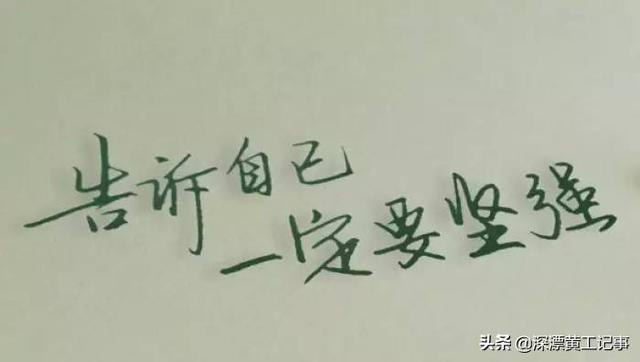 告诉自己
一定要坚强
头条 @深漂黄工记事